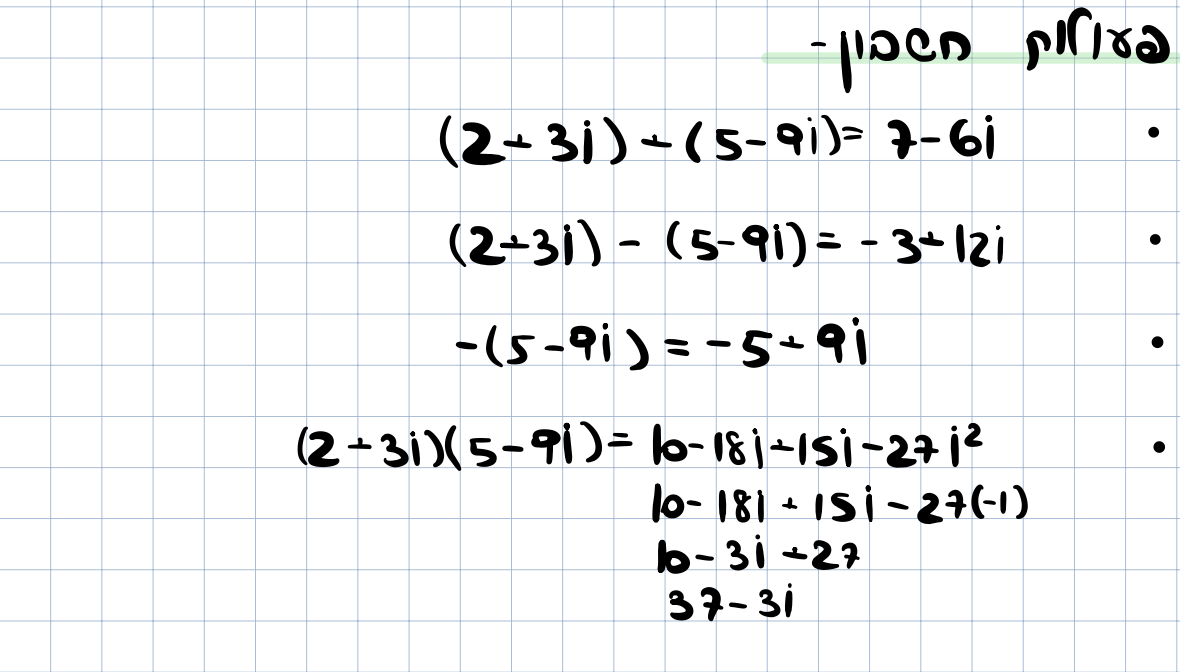 פעולות חשבון -
• (2+3i)+(5-9i)= 7-6i
• (2+3i) - (5-9i) = -3+12i
• -(5-9i) = -5+9i
• (2+3i)(5-9i)= 10-18i+15i-27i²
10-18i + 15i - 27(-1)
10-3i +27
37-3i